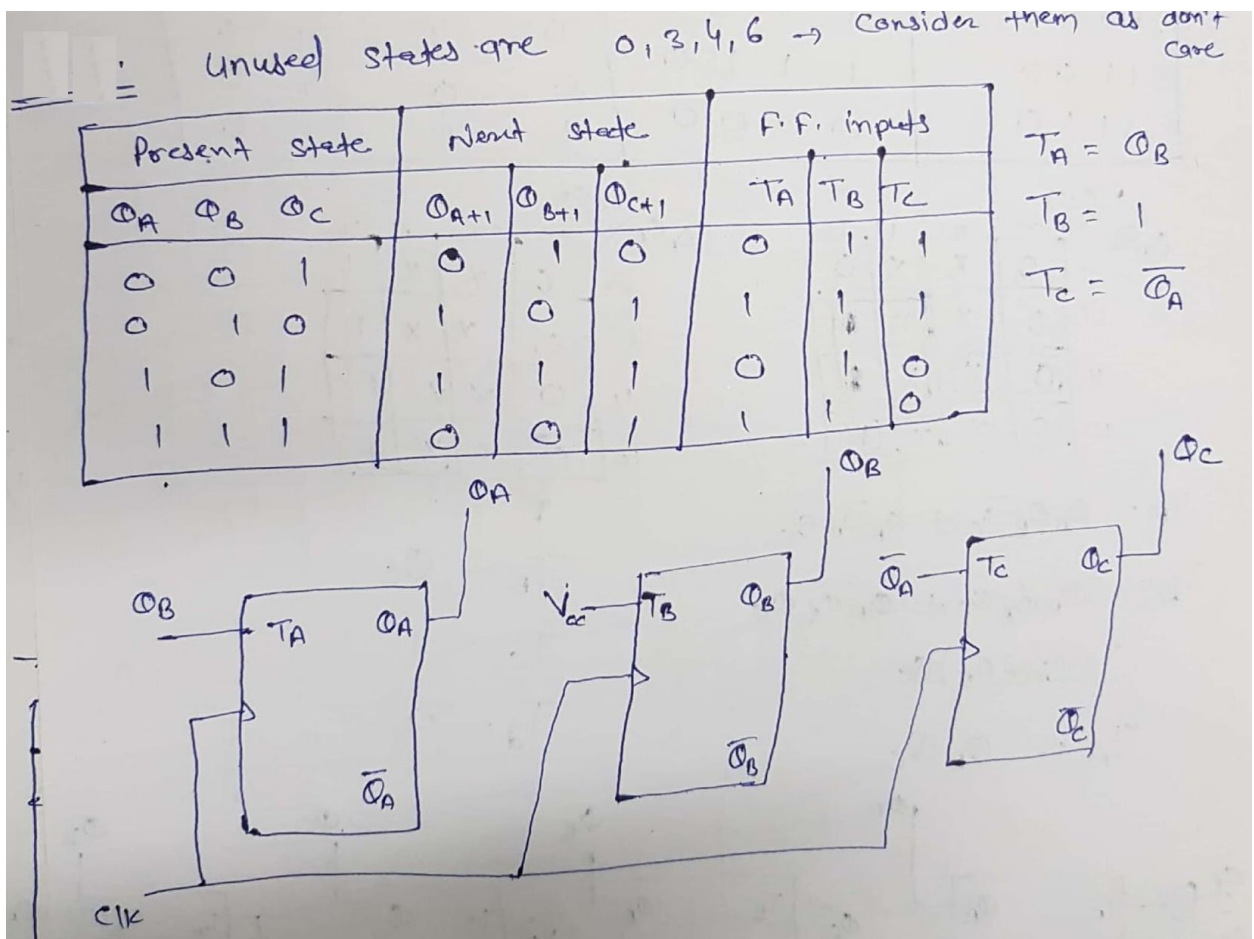 : Unused states are 0, 3, 4, 6 → Consider them as don't
care
Present state Next state F.F. inputs
Q_A Q_B Q_C Q_A+1 Q_B+1 Q_C+1 T_A T_B T_C
0 0 1 0 1 0 0 1 1
0 1 0 1 0 1 1 1 1
1 0 1 1 1 1 0 1 0
1 1 1 0 0 1 1 1 0
T_A = Q_B
T_B = 1
T_C = Q̅_A
Q_A Q_B Q_C
Q_B T_A Q_A V_cc T_B Q_B Q̅_A T_C Q_C
Q̅_A Q̅_B Q̅_C
Clk